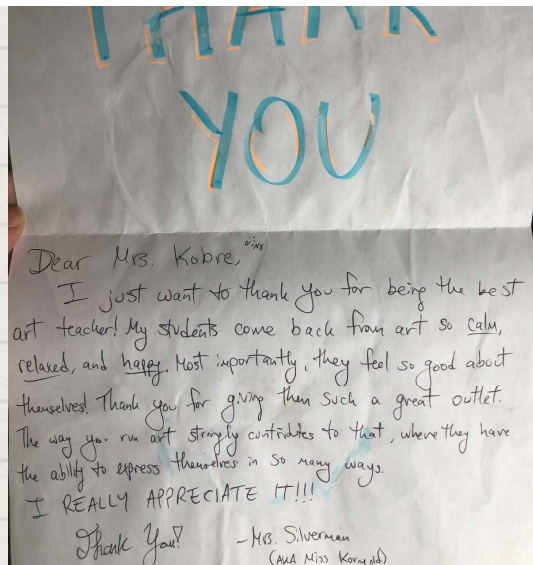 THANK
YOU
Dear Mrs. Kobre,
I just want to thank you for being the best
art teacher! My students come back from art so calm,
relaxed, and happy. Most importantly, they feel so good about
themselves! Thank you for giving them such a great outlet.
The way you run art strongly contributes to that, where they have
the ability to express themselves in so many ways.
I REALLY APPRECIATE IT!!!
Thank You!
-Mrs. Silverman
(AKA Miss Korngold)